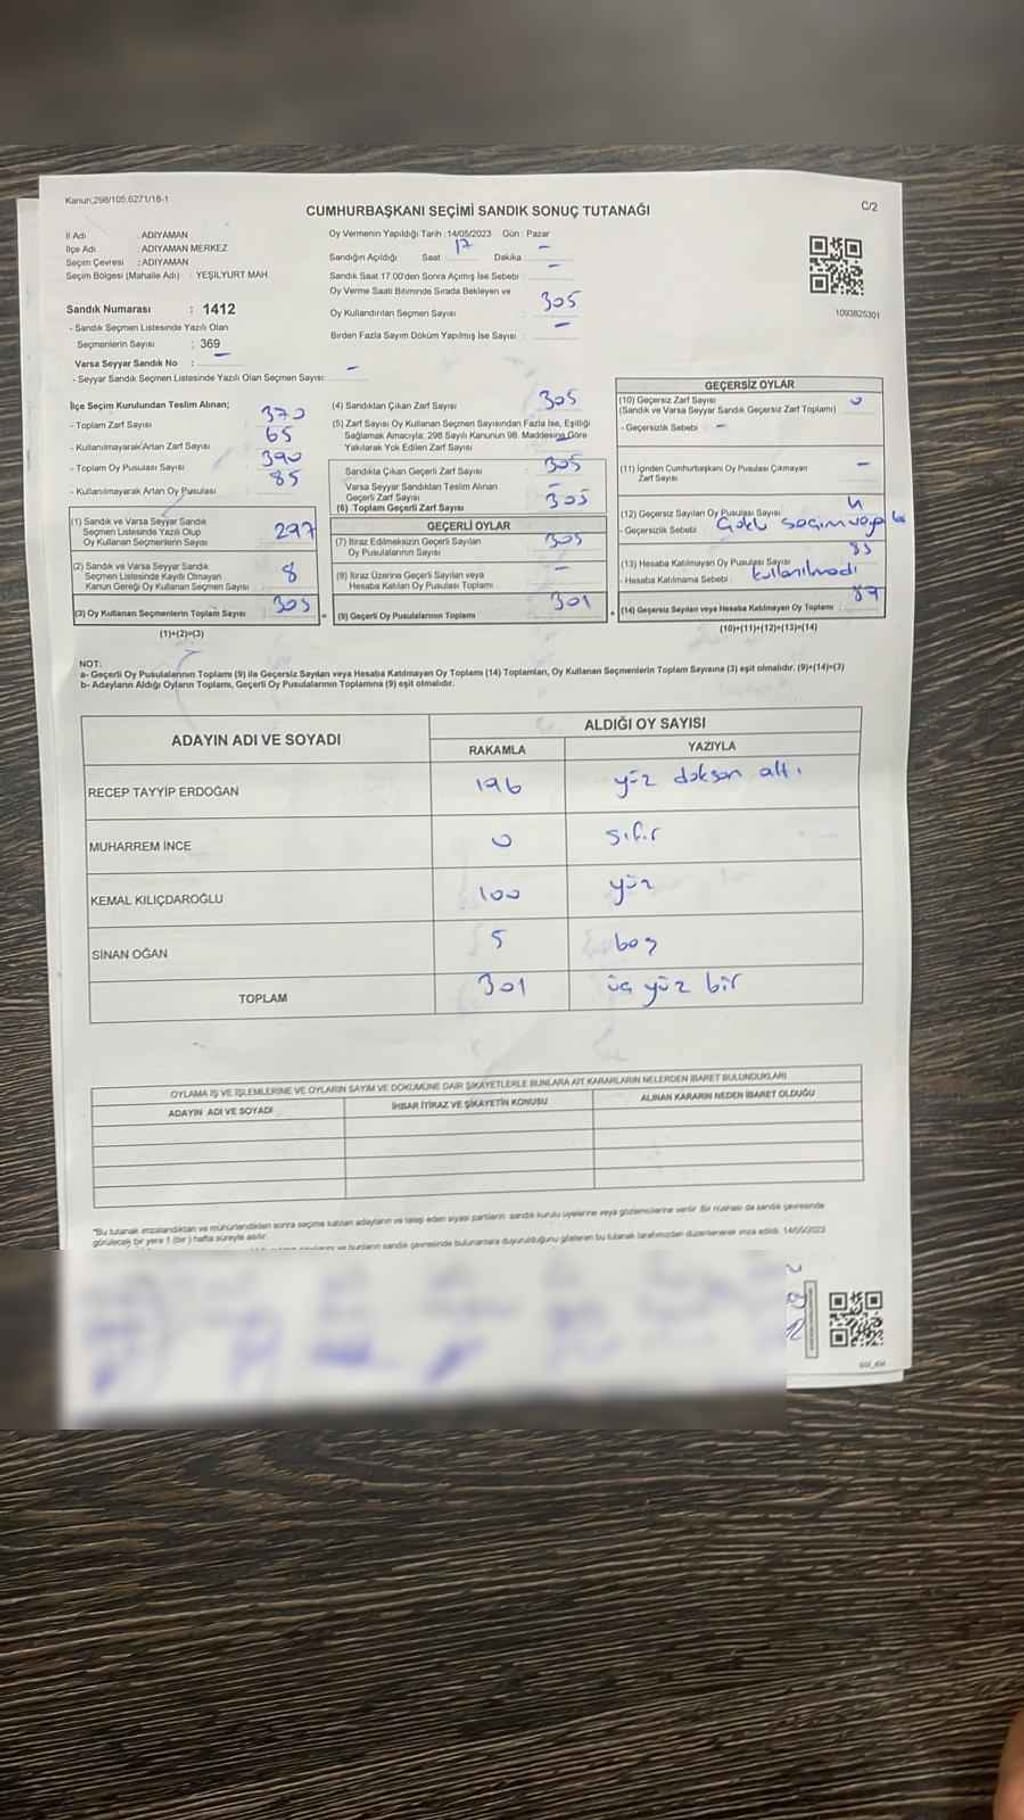 Kanun,298/105,6271/18-1
C/2
CUMHURBAŞKANI SEÇİMİ SANDIK SONUÇ TUTANAĞI
İl Adı : ADIYAMAN
İlçe Adı : ADIYAMAN MERKEZ
Seçim Çevresi : ADIYAMAN
Seçim Bölgesi (Mahalle Adı) : YEŞİLYURT MAH.
Sandık Numarası : 1412
- Sandık Seçmen Listesinde Yazılı Olan
Seçmenlerin Sayısı : 369
Varsa Seyyar Sandık No : -
- Seyyar Sandık Seçmen Listesinde Yazılı Olan Seçmen Sayısı: -
Oy Vermenin Yapıldığı Tarih :14/05/2023 Gün : Pazar
Sandığın Açıldığı Saat 17 Dakika -
Sandık Saat 17.00'den Sonra Açılmış İse Sebebi -
Oy Verme Saati Bitiminde Sırada Bekleyen ve
Oy Kullandırılan Seçmen Sayısı : 305
Birden Fazla Sayım Döküm Yapılmış İse Sayısı : -
1093825301
İlçe Seçim Kurulundan Teslim Alınan;
- Toplam Zarf Sayısı 370
- Kullanılmayarak Artan Zarf Sayısı 65
- Toplam Oy Pusulası Sayısı 390
- Kullanılmayarak Artan Oy Pusulası 85
(1) Sandık ve Varsa Seyyar Sandık
Seçmen Listesinde Yazılı Olup
Oy Kullanan Seçmenlerin Sayısı 297
(2) Sandık ve Varsa Seyyar Sandık
Seçmen Listesinde Kayıtlı Olmayan
Kanun Gereği Oy Kullanan Seçmen Sayısı 8
(3) Oy Kullanan Seçmenlerin Toplam Sayısı 305
(1)+(2)=(3)
(4) Sandıktan Çıkan Zarf Sayısı 305
(5) Zarf Sayısı Oy Kullanan Seçmen Sayısından Fazla İse, Eşitliği
Sağlamak Amacıyla; 298 Sayılı Kanunun 98. Maddesine Göre
Yakılarak Yok Edilen Zarf Sayısı -
Sandıkta Çıkan Geçerli Zarf Sayısı 305
Varsa Seyyar Sandıktan Teslim Alınan
Geçerli Zarf Sayısı -
(6) Toplam Geçerli Zarf Sayısı 305
GEÇERLİ OYLAR
(7) İtiraz Edilmeksizin Geçerli Sayılan
Oy Pusulalarının Sayısı 305
(8) İtiraz Üzerine Geçerli Sayılan veya
Hesaba Katılan Oy Pusulası Toplamı -
(9) Geçerli Oy Pusulalarının Toplamı 301
GEÇERSİZ OYLAR
(10) Geçersiz Zarf Sayısı 0
(Sandık ve Varsa Seyyar Sandık Geçersiz Zarf Toplamı)
- Geçersizlik Sebebi -
(11) İçinden Cumhurbaşkanı Oy Pusulası Çıkmayan
Zarf Sayısı -
(12) Geçersiz Sayılan Oy Pusulası Sayısı 4
- Geçersizlik Sebebi Çoklu seçim
(13) Hesaba Katılmayan Oy Pusulası Sayısı 85
- Hesaba Katılmama Sebebi kullanılmadı
(14) Geçersiz Sayılan veya Hesaba Katılmayan Oy Toplamı 89
(10)+(11)+(12)+(13)=(14)
NOT:
a- Geçerli Oy Pusulalarının Toplamı (9) ile Geçersiz Sayılan veya Hesaba Katılmayan Oy Toplamı (14) Toplamları, Oy Kullanan Seçmenlerin Toplam Sayısına (3) eşit olmalıdır. (9)+(14)=(3)
b- Adayların Aldığı Oyların Toplamı, Geçerli Oy Pusulalarının Toplamına (9) eşit olmalıdır.
ADAYIN ADI VE SOYADI
ALDIĞI OY SAYISI
RAKAMLA YAZIYLA
RECEP TAYYİP ERDOĞAN 196 yüz doksan altı
MUHARREM İNCE 0 sıfır
KEMAL KILIÇDAROĞLU 100 yüz
SİNAN OĞAN 5 beş
TOPLAM 301 üç yüz bir
OYLAMA İŞ VE İŞLEMLERİNE VE OYLARIN SAYIM VE DÖKÜMÜNE DAİR ŞİKAYETLERLE BUNLARA AİT KARARLARIN NELERDEN İBARET BULUNDUKLARI
ADAYIN ADI VE SOYADI
İHBAR İTİRAZ VE ŞİKAYETİN KONUSU
ALINAN KARARIN NEDEN İBARET OLDUĞU
"Bu tutanak imzalandıktan ve mühürlendikten sonra seçime katılan adayların ve talep eden siyasi partilerin sandık kurulu üyelerine veya gözlemcilerine verilir. Bir nüshası da sandık çevresinde
görülecek bir yere 1 (bir) hafta süreyle asılır.
ve bunların sandık çevresinde bulunanlara duyurulduğunu gösteren bu tutanak tarafımızdan düzenlenerek imza edildi. 14/05/2023